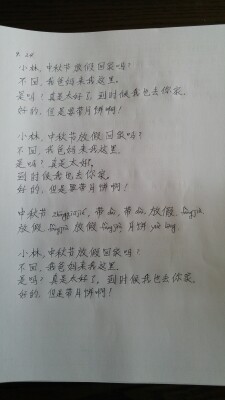 小林，中秋节放假回家吗？
不回，我爸妈来我这里。
是吗！真是太好了，到时候我也去你家。
好的，但是要带月饼啊！
小林，中秋节放假回家吗？
不回，我爸妈来我这里。
是吗！真是太好了，
到时候我也去你家。
好的，但是要带月饼啊！
中秋节 zhōngqiūjié，带 dài，带 dài，放假 fàngjià
放假 fàngjià 放假 fàngjià 月饼 yuè bǐng
小林，中秋节放假回家吗？
不回，我爸妈来我这里。
是吗！真是太好了，到时候我也去你家。
好的，但是带月饼啊！